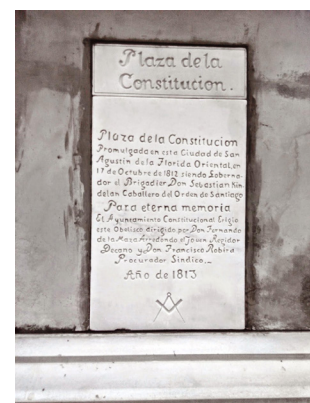 Plaza de la
Constitucion.
Plaza de la Constitucion
Promulgada en esta Ciudad de San
Agustin de la Florida Oriental, en
17 de Octubre de 1812 siendo Goberna-
dor el Brigadier Don Sebastian Kin
dalan Caballero del Orden de Santiago
Para eterna memoria
El Ayuntamiento Constitucional Erigio
este Obelisco dirigido por Don Fernando
de la Maza Arredondo el Joven Regidor
Decano y Don Francisco Robira
Procurador Sindico._
Año de 1813